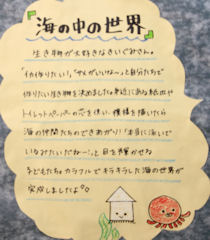 『海の中の世界』
生き物が大好きなきいぐみさん。
「イカ作りたい!」「サメがいいな〜」と自分たちで
作りたい生き物を決めました。身近にある紙皿や
トイレットペーパーの芯を使い、模様を描いたら
海の仲間たちのできあがり!「本当に泳いで
いるみたいだね〜!」と目を輝かせる
子どもたち。カラフルでキラキラした海の世界が
完成しましたよ